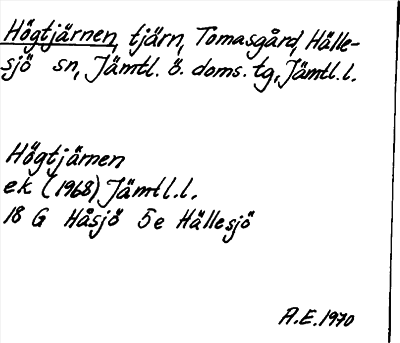 Högtjärnen, tjärn, Tomasgård, Hälle-
sjö sn, Jämtl. ö. doms. tg, Jämtl. l.
Högtjärnen
ek (1968) Jämtl. l.
18 G Håsjö 5e Hällesjö
A.E. 1970